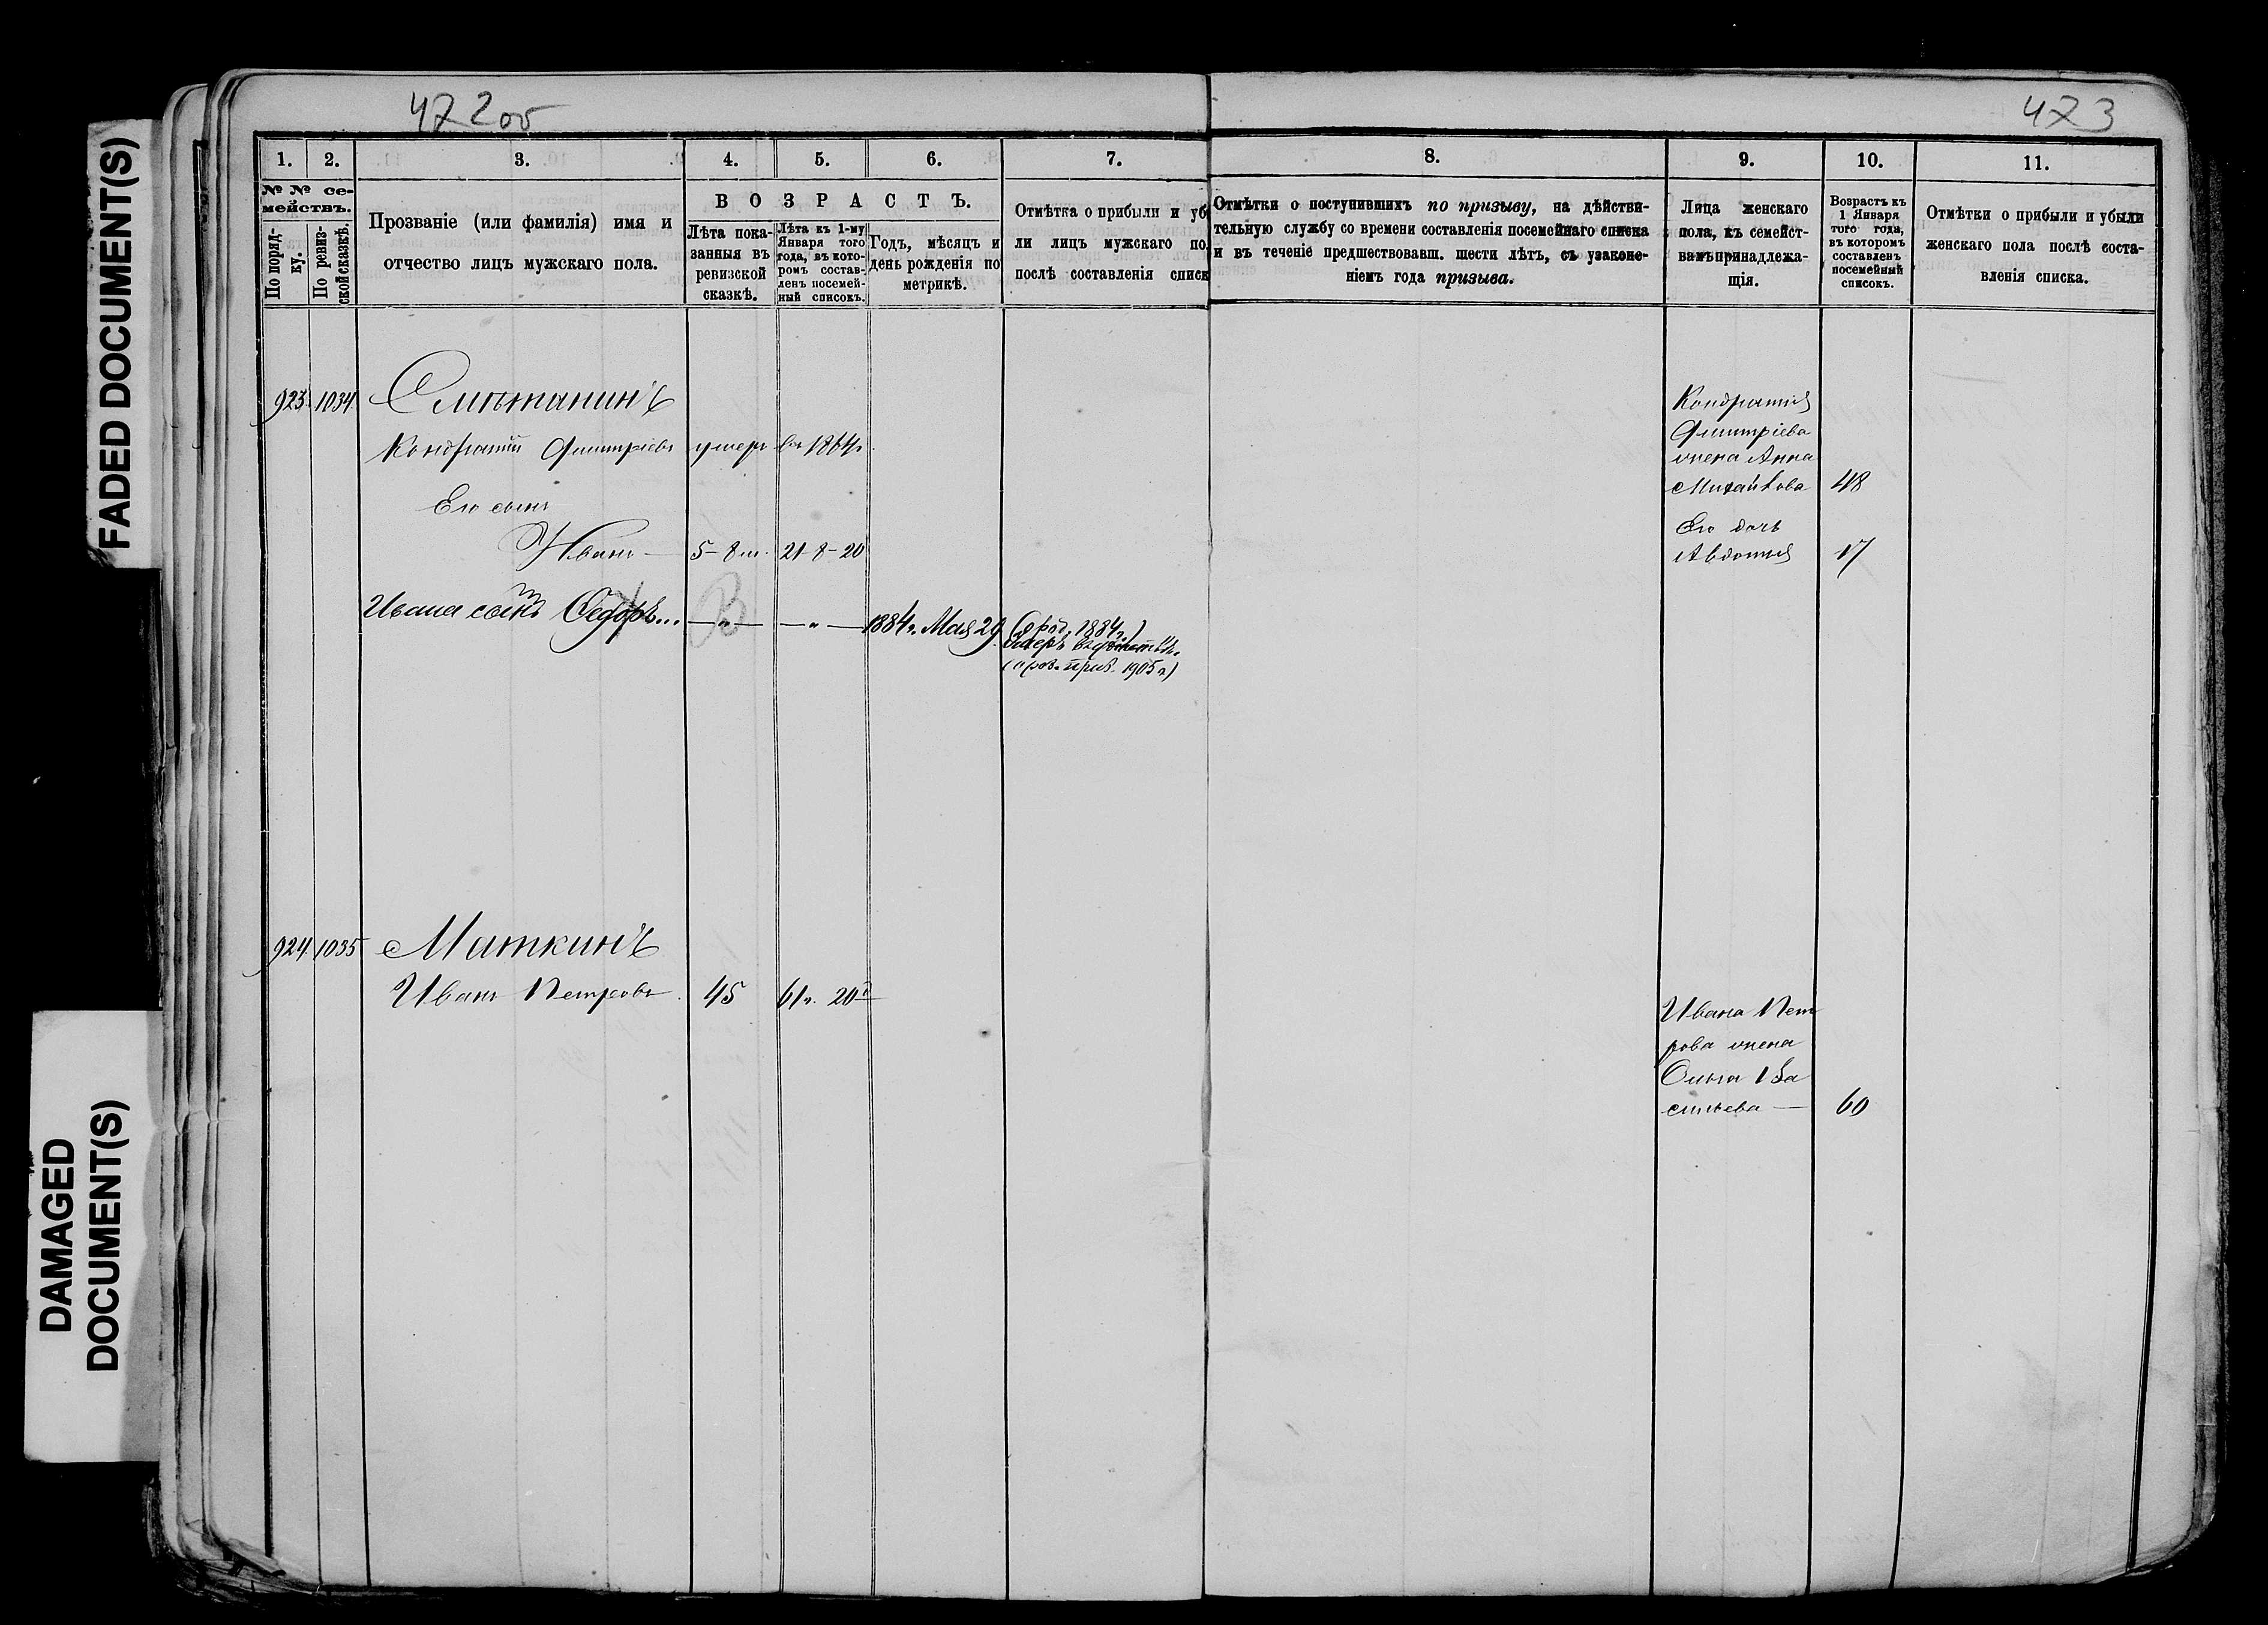 FADED DOCUMENT(S)
DAMAGED
DOCUMENT(S)
472 об
473
1. 2. 3. 4. 5. 6. 7. 8. 9. 10. 11.
№ № се-
мействъ.
По поряд-
ку.
По ревиз-
ской сказкѣ.
Прозваніе (или фамилія) имя и
отчество лицъ мужскаго пола.
ВОЗРАСТЪ.
Лѣта пока-
занныя въ
ревизской
сказкѣ.
Лѣта къ 1-му
Января того
года, въ кото-
ромъ состав-
ленъ посемей-
ный списокъ.
Годъ, мѣсяцъ и
день рожденія по
метрикѣ.
Отмѣтка о прибыли и уб
ли лицъ мужскаго по
послѣ составленія списк
Отмѣтки о поступившихъ по призыву, на дѣйстви-
тельную службу со времени составленія посемейнаго списка
и въ теченіе предшествовавш. шести лѣтъ, съ узаконе-
ніемъ года призыва.
Лица женскаго
пола, къ семейст-
вамъ принадлежа-
щія.
Возрастъ къ
1 Января
того года,
въ которомъ
составленъ
посемейный
списокъ.
Отмѣтки о прибыли и убыли
женскаго пола послѣ соста-
вленія списка.
923 1034
Кондратій Дмитріевъ умеръ въ 1864г.
Его сынъ
Иванъ — 5-8 м. 21-8-20
Ивана сынъ Ѳедоръ... —"— —"— 1884г. Мая 29
(о род. 1884г.)
(пров. приб. 1905г.)
Кондратія
Дмитріева
жена Анна
Михайлова 48
Его дочь
Авдотья 17
924 1035 Маткинъ
Иванъ Петровъ 45 61г. 20д
Ивана Пет
рова жена
Ольга Ва
сильева — 60